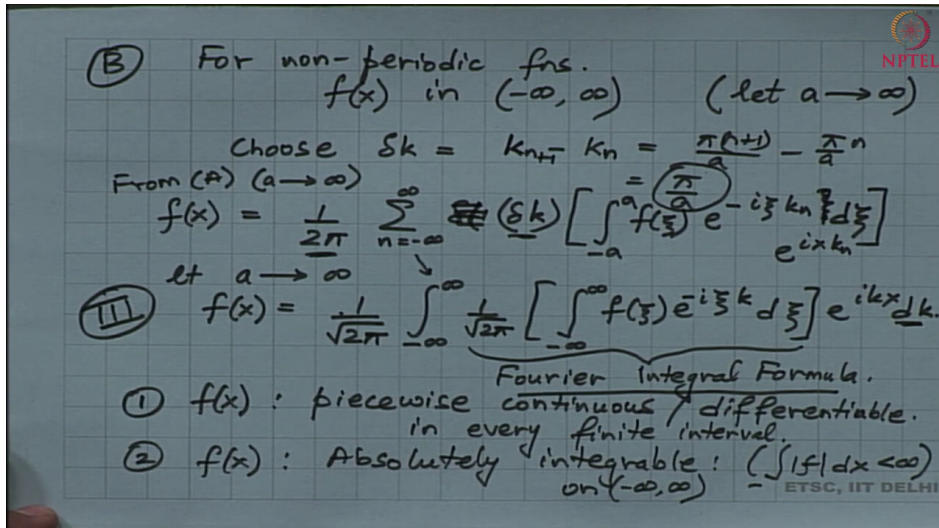 NPTEL
(B) For non-periodic fns.
f(x) in (-∞, ∞) (let a → ∞)
Choose δk = k_{n+1} - k_n = π(n+1)/a - π/a n
= π/a
From (A) (a → ∞)
f(x) = 1/2π Σ_{n=-∞}^{∞} (δk) [∫_{-a}^{a} f(ξ) e^{-iξk_n} dξ] e^{ixk_n}
let a → ∞
(III) f(x) = 1/√2π ∫_{-∞}^{∞} 1/√2π [∫_{-∞}^{∞} f(ξ) e^{-iξk} dξ] e^{ikx} dk.
Fourier Integral Formula.
(1) f(x) : piecewise continuous / differentiable.
in every finite interval.
(2) f(x) : Absolutely integrable : (∫|f|dx < ∞)
on (-∞, ∞)
ETSC, IIT DELHI